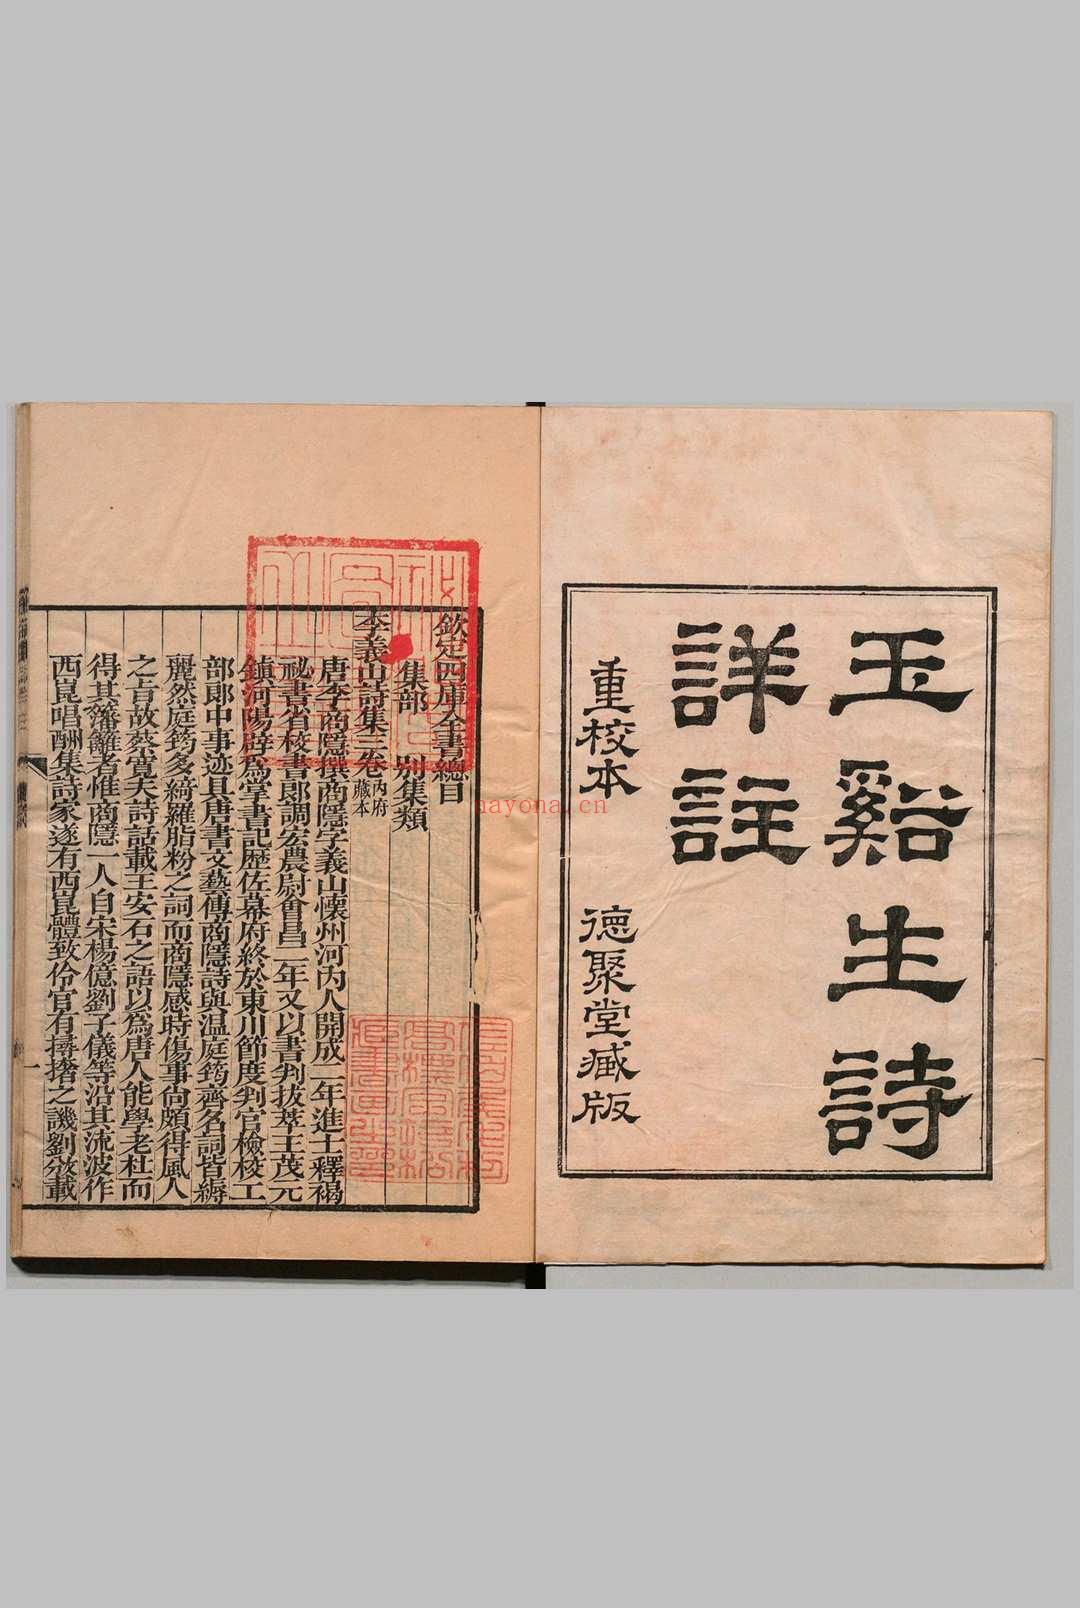 玉谿生詩
詳註
重校本 德聚堂藏版
欽定四庫全書總目
集部 別集類
李義山詩集三卷內府藏本
唐李商隱撰商隱字義山懷州河內人開成二年進士釋褐
祕書省校書郎調宏農尉會昌二年又以書判拔萃王茂元
鎮河陽辟為掌書記歷佐幕府終於東川節度判官檢校工
部郎中事迹具唐書文藝傳商隱詩與温庭筠齊名詞皆縟
麗然庭筠多綺羅脂粉之詞而商隱感時傷事尚頗得風人
之旨故蔡寬夫詩話載王安石之語以為唐人能學老杜而
得其藩籬者惟商隱一人自宋楊億劉子儀等沿其流波作
西崑唱酬集詩家遂有西崑體致伶官有撏撦之譏劉攽載
一
nayona.cn